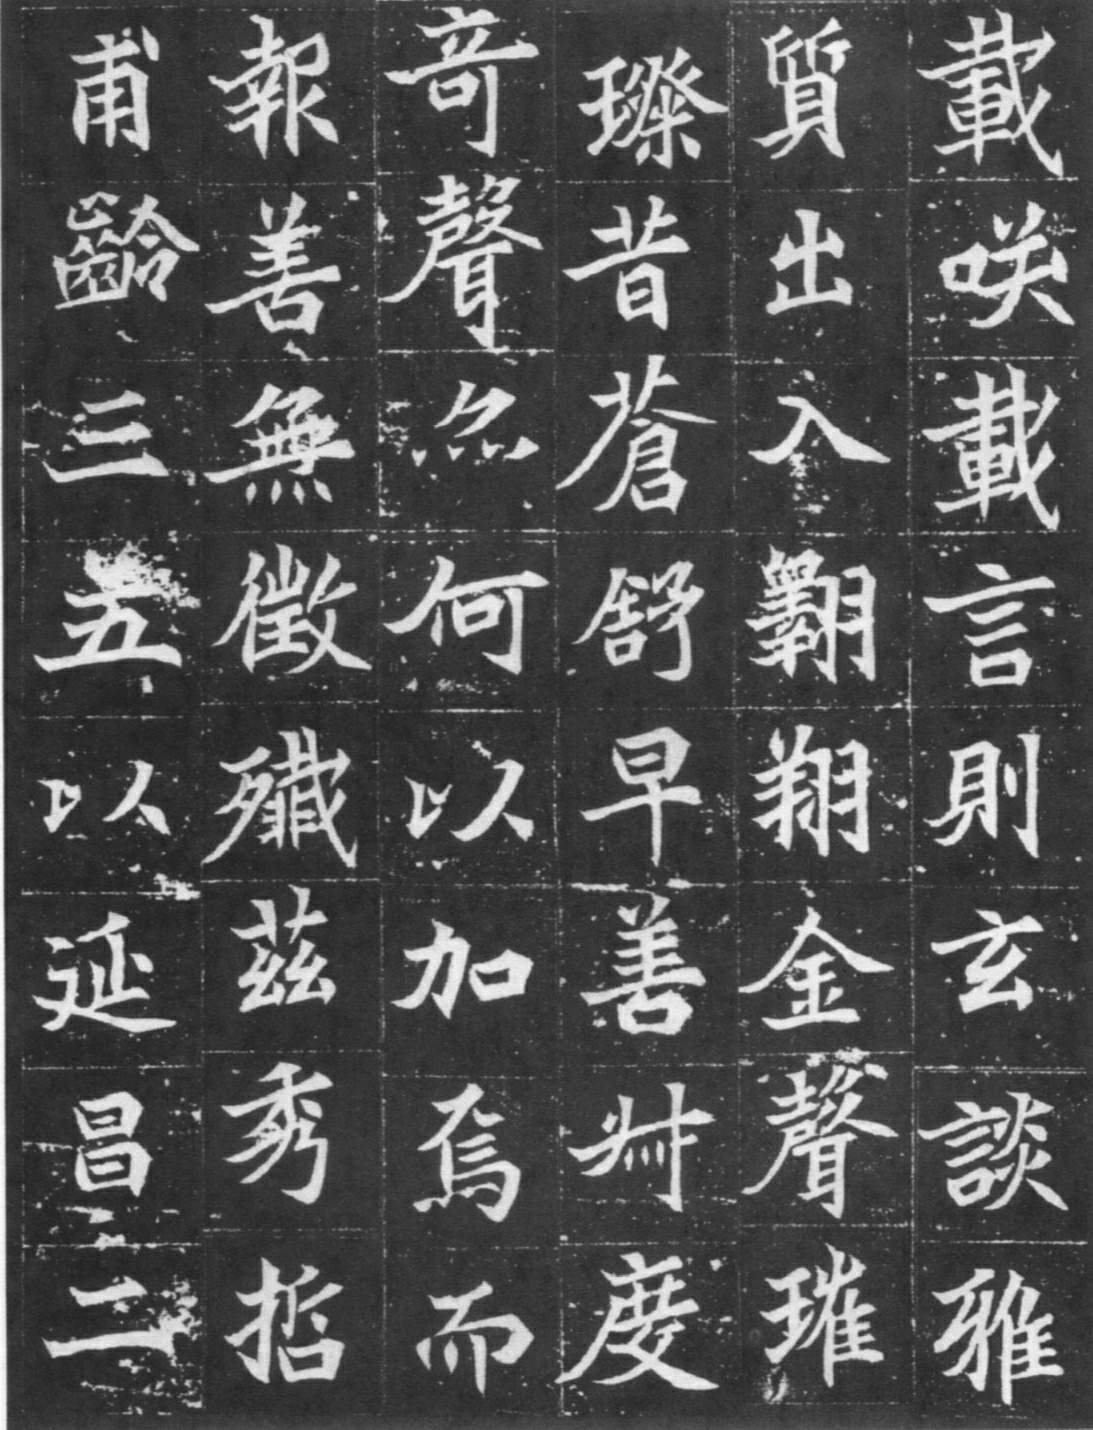 載咲載言則玄談雅
質出入翱翔金聲璀
璨昔蒼舒早善叔度
奇聲亦何以加焉而
報善無徵殲茲秀哲
甫齡三五以延昌二